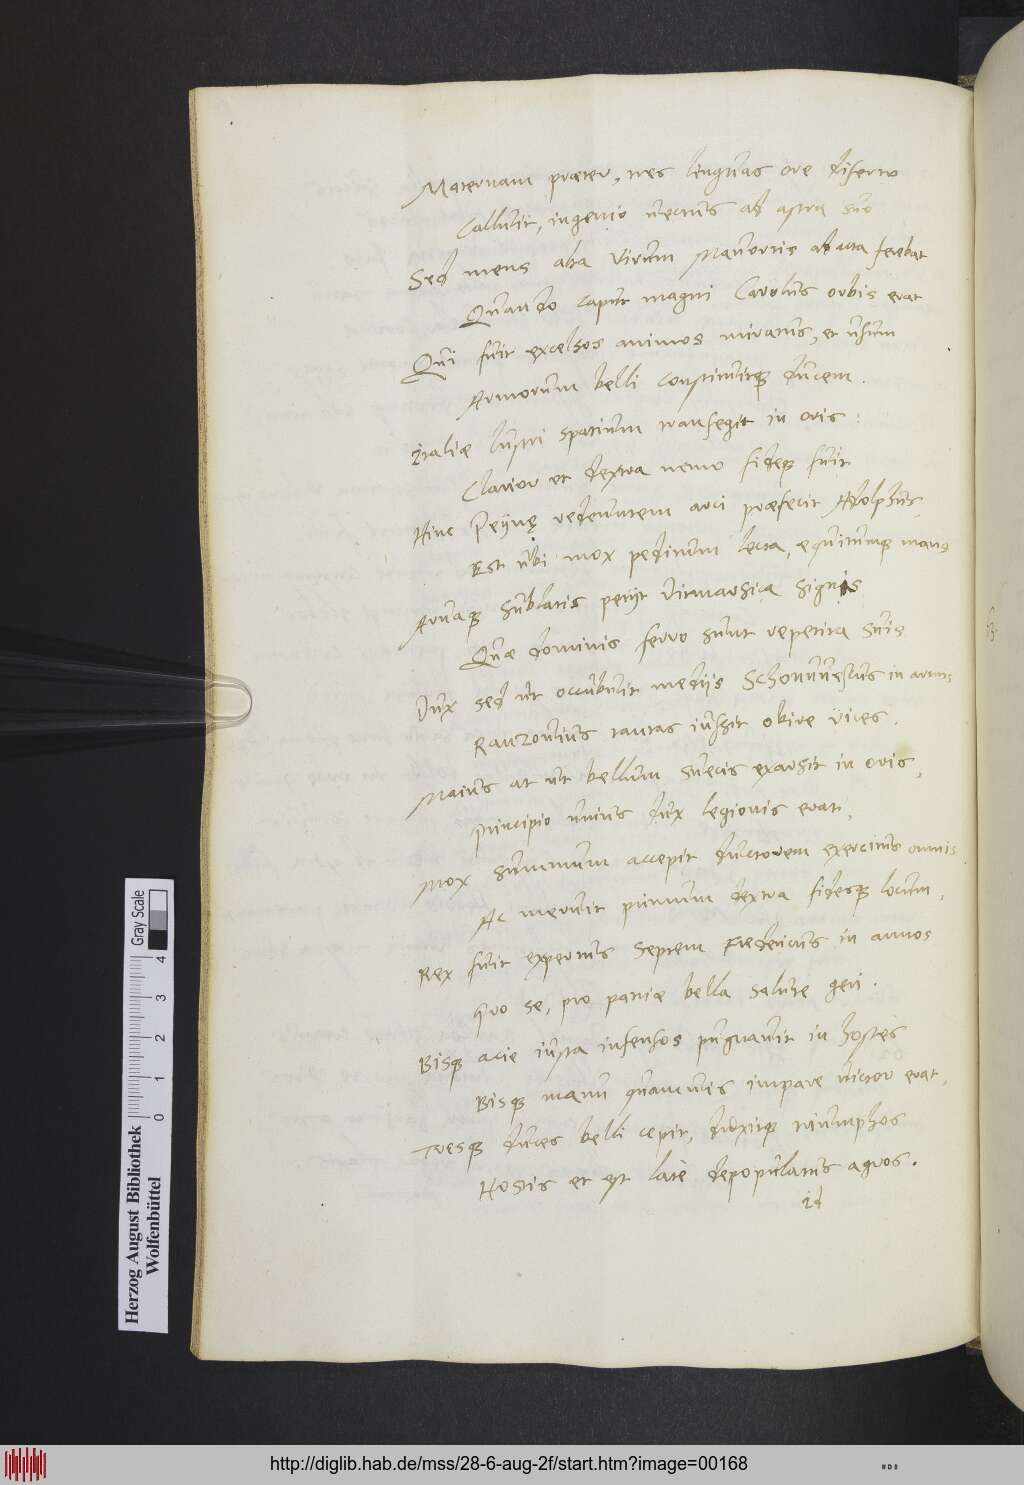 Maternam præter, tres linguas ore diserto
Calluit, ingenio vectus ad astra suo
Sed mens alta virum Mavortis ad acta ferebat
Quando caput magni Carolus orbis erat
Qui fuit excelsos animos miratus, et usum
Armorum belli constituitq ducem.
Italiæ lustri spatium transegit in oris :
Clarior et dextra nemo fideq fuit
Hinc Peynę redeuntem arci præfecit Adolphus,
Est ubi mox peditum lecta, equitumq manus
Arvaq sublatis petijt Ditmarsica signis
Quæ dominis ferro sunt repetita suis
Dux sed ut occubuit medijs Schonuuesus in armis
Ranzonius tantas iussit obire vices.
Maius at ut bellum Suecis exarsit in oris,
Principio unius dux legionis erat,
Mox summum accepit ductorem exercitus omnis
Ac meruit primum dextra fidesq locum,
Rex fuit expertus septem Fredericus in annos
Quo se, pro patriæ bella salute geri.
Bisq acie iusta infensos pugnavit in hostes
Bisq manu quamvis impare victor erat,
Tresq duces belli cepit, duxitq triumphos
Hostis et est latè depopulatus agros.
id
Herzog August Bibliothek
Wolfenbüttel
0 1 2 3 4
Gray Scale
http://diglib.hab.de/mss/28-6-aug-2f/start.htm?image=00168